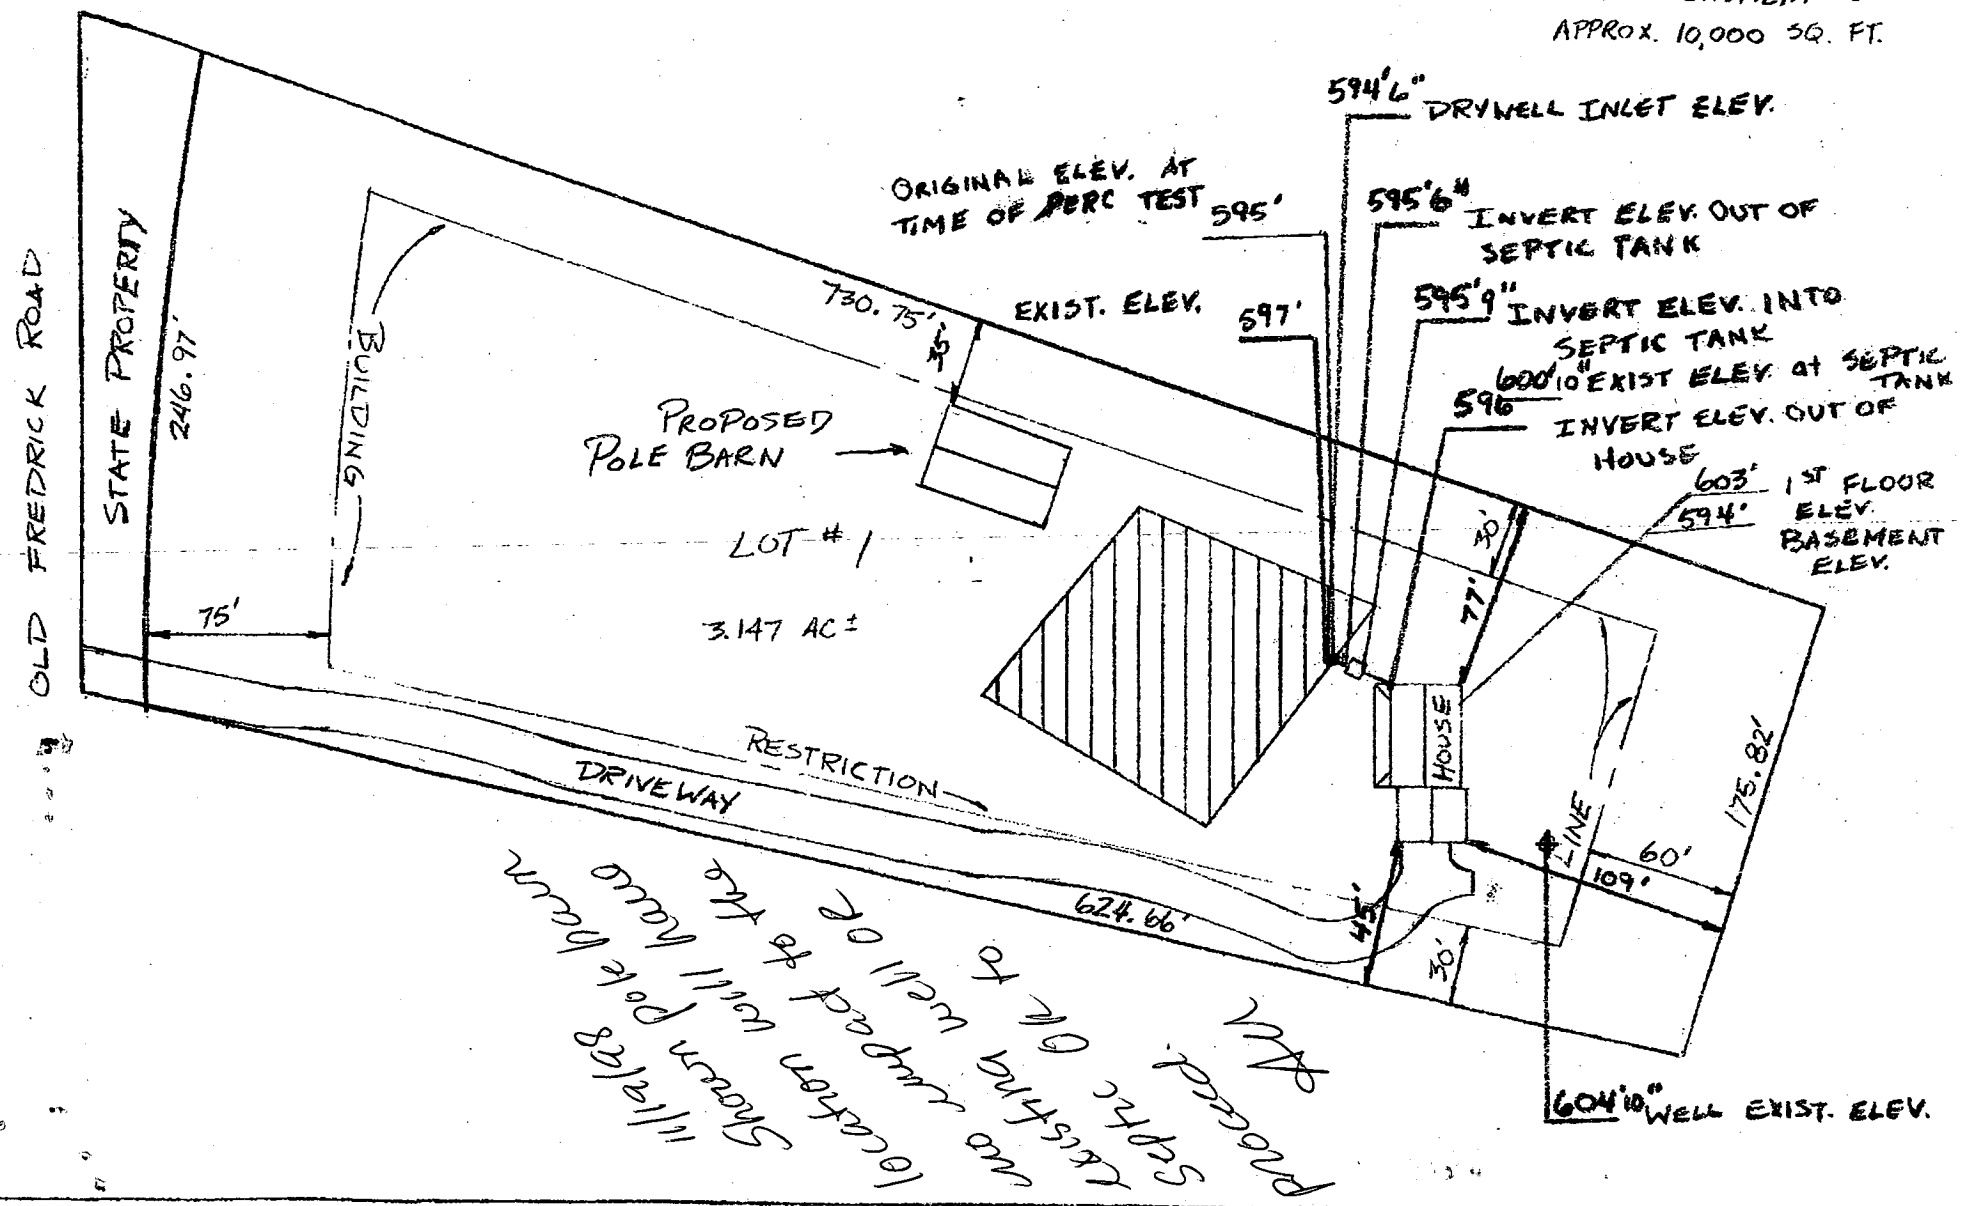 APPROX. 10,000 SQ. FT.
594'6" DRYWELL INLET ELEV.
ORIGINAL ELEV. AT
TIME OF PERC TEST 595'
595'6" INVERT ELEV. OUT OF
SEPTIC TANK
EXIST. ELEV. 597'
595'9" INVERT ELEV. INTO
SEPTIC TANK
600'10" EXIST ELEV. at SEPTIC
TANK
596 INVERT ELEV. OUT OF
HOUSE
603' 1ST FLOOR
ELEV.
594' BASEMENT
ELEV.
OLD FREDRICK ROAD
STATE PROPERTY
246.97'
BUILDING
730.75'
35'
PROPOSED
POLE BARN
LOT # 1
3.147 AC ±
75'
30'
77'
HOUSE
175.82'
LINE
60'
109'
RESTRICTION
DRIVEWAY
624.66'
45'
30'
604'10" WELL EXIST. ELEV.
11/12/98
Shown pole barn
location will have
no impact to the
existing well OR
Septic OK to
proceed.